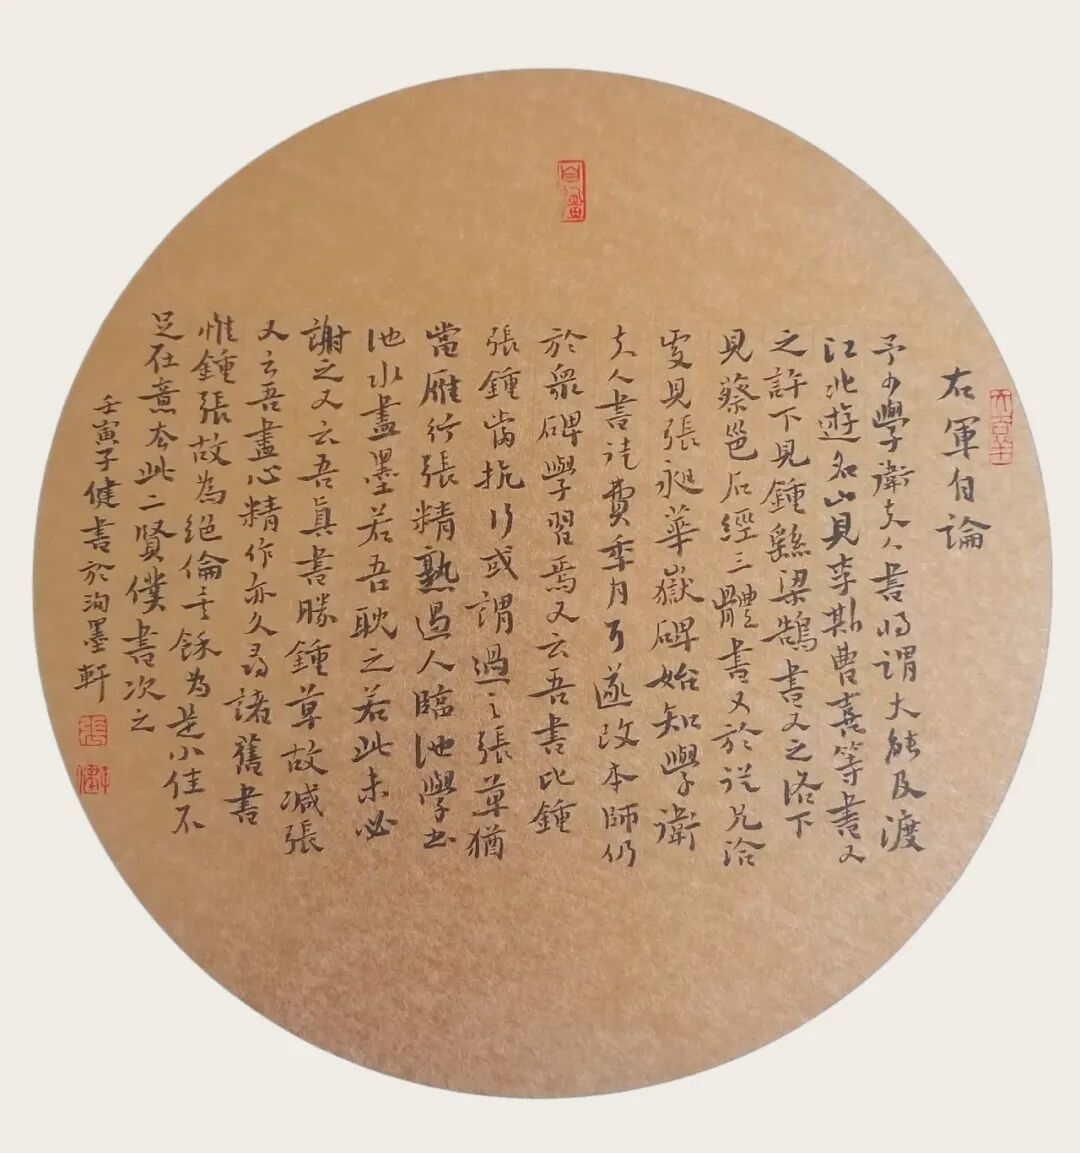 右軍自論
予少學衛夫人書將謂大能及渡
江北遊名山見李斯曹喜等書又
之許下見鍾繇梁鵠書又之洛下
見蔡邕石經三體書又於從兄洽
處見張昶華嶽碑始知學衛
夫人書徒費年月耳遂改本師仍
於眾碑學習焉又云吾書比鍾
張鍾當抗行或謂過之張草猶
當雁行張精熟過人臨池學書
池水盡墨若吾耽之若此未必
謝之又云吾真書勝鍾草故減張
又云吾盡心精作亦久尋諸舊書
惟鍾張故為絕倫其餘為是小佳不
足在意去此二賢僕書次之
壬寅子健書於洵墨軒
張